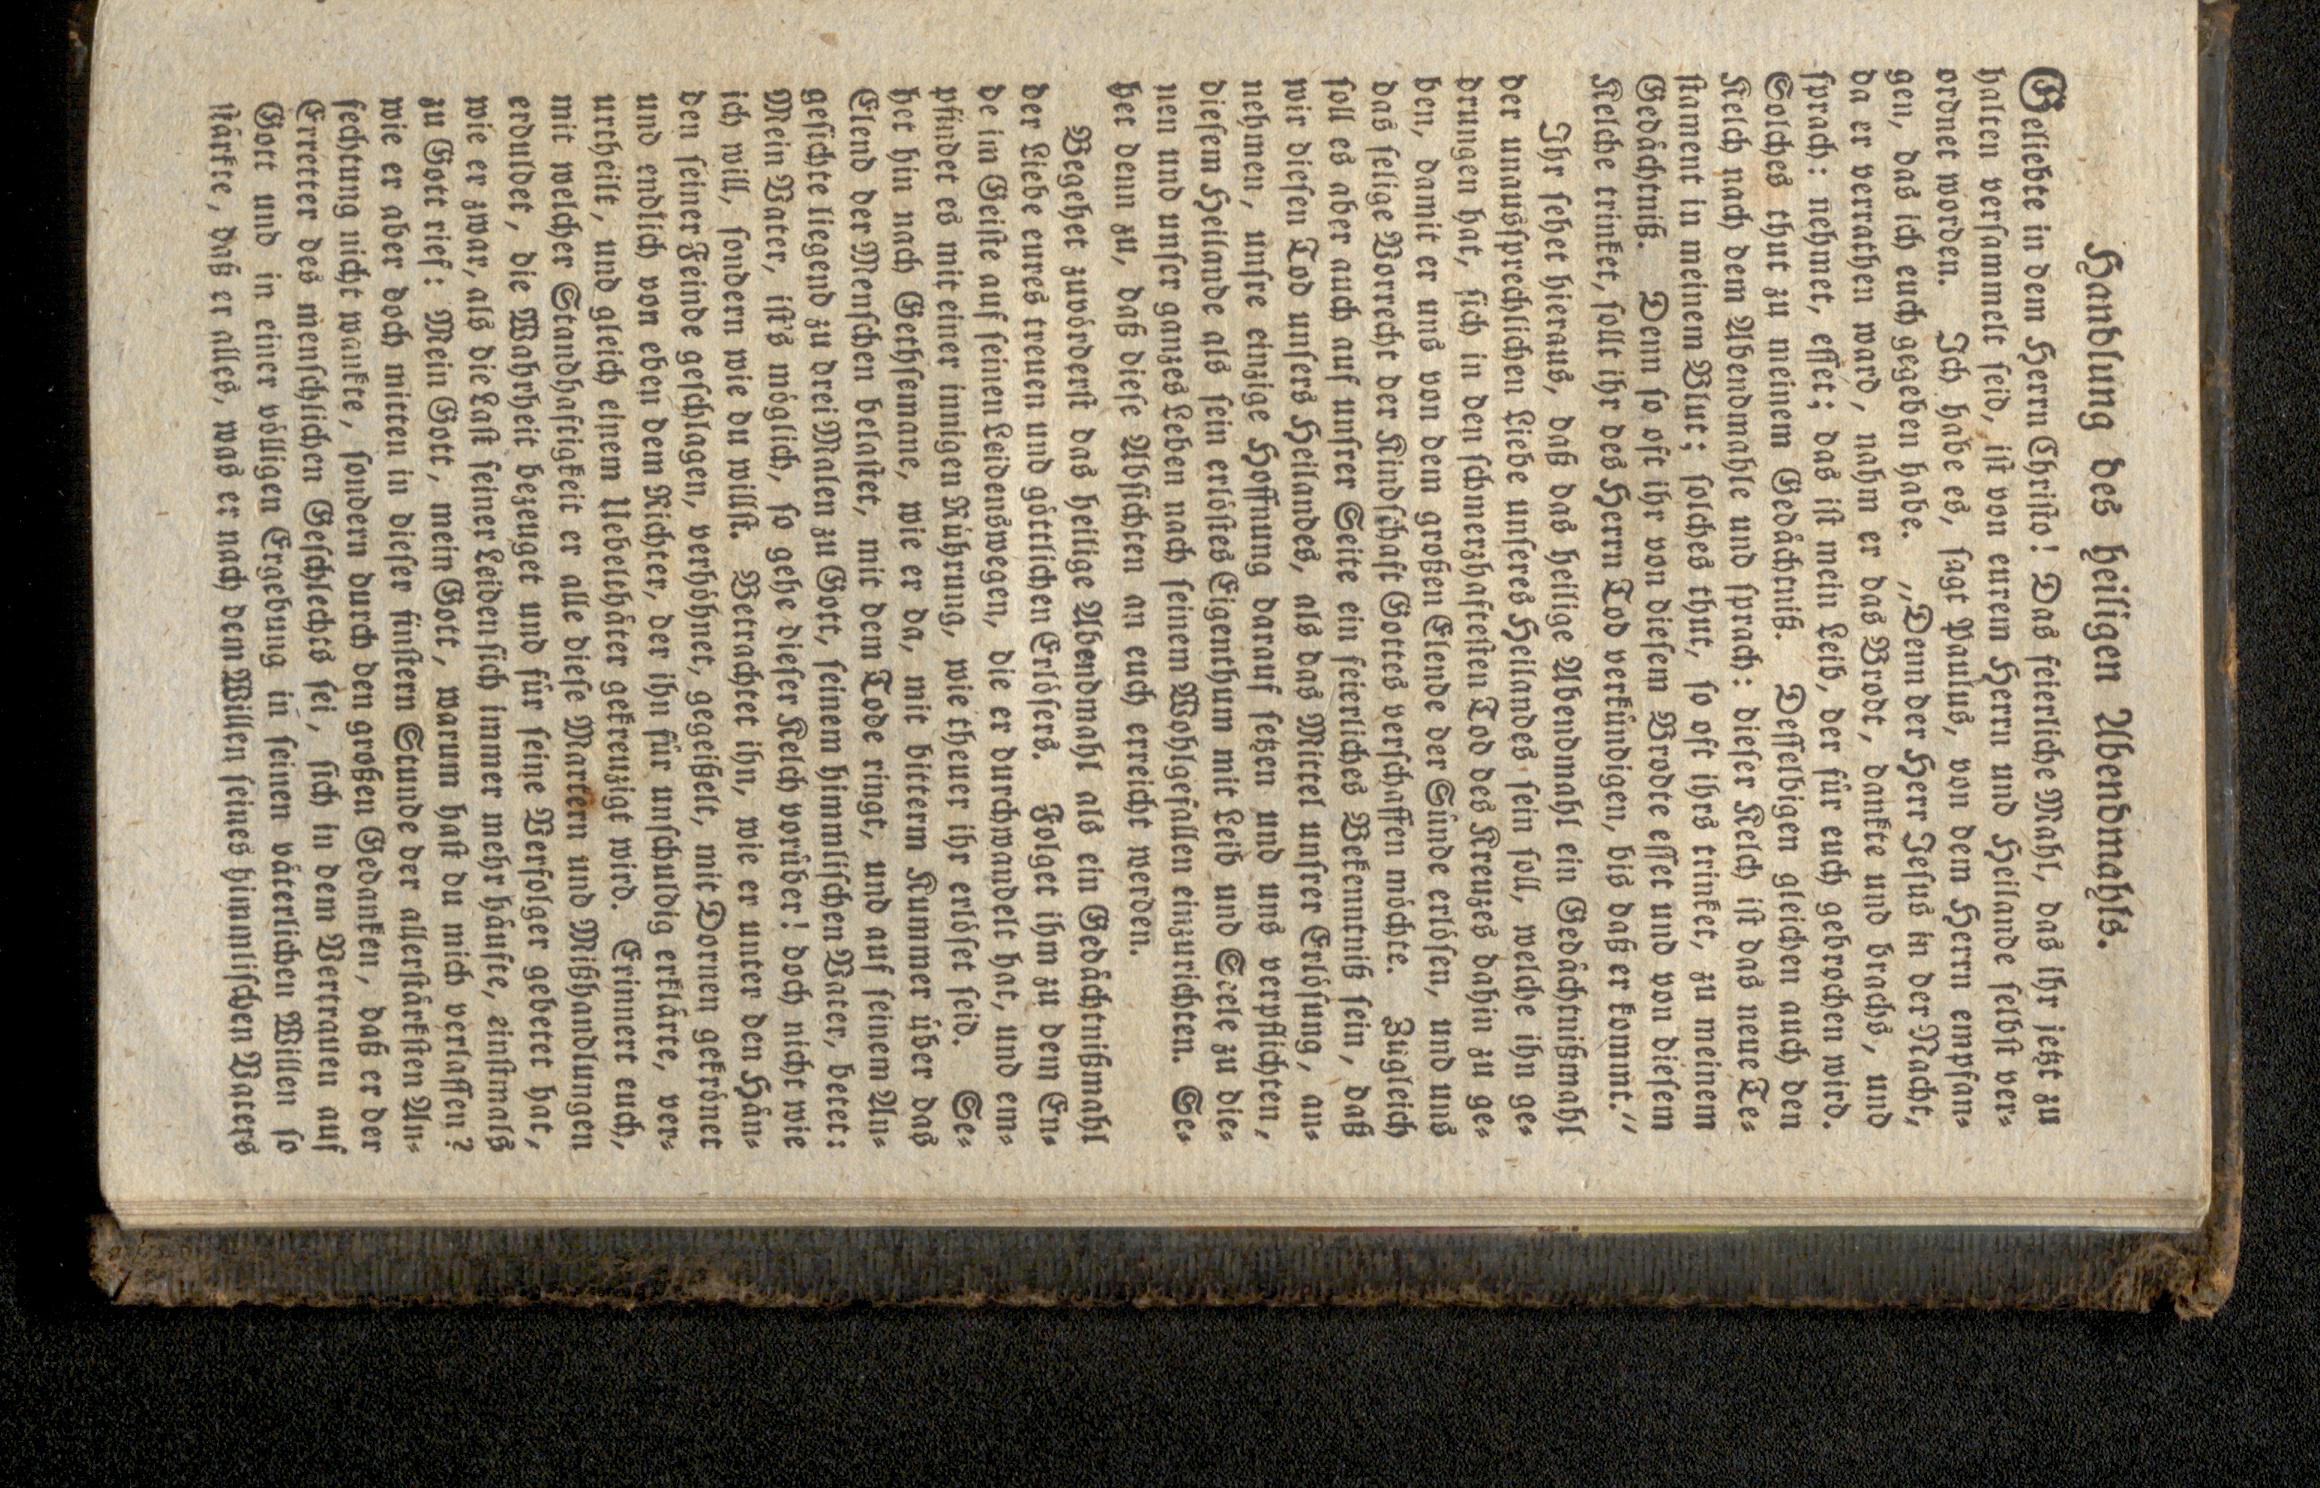 Handlung des heiligen Abendmahls.
Geliebte in dem Herrn Christo! Das feierliche Mahl, das ihr jetzt zu
halten versammelt seid, ist von eurem Herrn und Heilande selbst ver-
ordnet worden. Ich habe es, sagt Paulus, von dem Herrn empfan-
gen, das ich euch gegeben habe. „Denn der Herr Jesus in der Nacht,
da er verrathen ward, nahm er das Brodt, dankte und brachs, und
sprach: nehmet, esset; das ist mein Leib, der für euch gebrochen wird.
Solches thut zu meinem Gedächtniß. Desselbigen gleichen auch den
Kelch nach dem Abendmahle und sprach: dieser Kelch ist das neue Te-
stament in meinem Blut; solches thut, so oft ihrs trinket, zu meinem
Gedächtniß. Denn so oft ihr von diesem Brodte esset und von diesem
Kelche trinket, sollt ihr des Herrn Tod verkündigen, bis daß er kommt.“
Ihr sehet hieraus, daß das heilige Abendmahl ein Gedächtnißmahl
der unaussprechlichen Liebe unseres Heilandes sein soll, welche ihn ge-
drungen hat, sich in den schmerzhaftesten Tod des Kreuzes dahin zu ge-
ben, damit er uns von dem großen Elende der Sünde erlösen, und uns
das selige Vorrecht der Kindschaft Gottes verschaffen möchte. Zugleich
soll es aber auch auf unsrer Seite ein feierliches Bekenntniß sein, daß
wir diesen Tod unsers Heilandes, als das Mittel unsrer Erlösung, an-
nehmen, unsre einzige Hoffnung darauf setzen und uns verpflichten,
diesem Heilande als sein erlöstes Eigenthum mit Leib und Seele zu die-
nen und unser ganzes Leben nach seinem Wohlgefallen einzurichten. Se-
het denn zu, daß diese Absichten an euch erreicht werden.
Begehet zuvörderst das heilige Abendmahl als ein Gedächtnißmahl
der Liebe eures treuen und göttlichen Erlösers. Folget ihm zu dem En-
de im Geiste auf seinen Leidenswegen, die er durchwandelt hat, und em-
pfindet es mit einer innigen Rührung, wie theuer ihr erlöset seid. Se-
het hin nach Gethsemane, wie er da, mit bitterm Kummer über das
Elend der Menschen belastet, mit dem Tode ringt, und auf seinem An-
gesichte liegend zu drei Malen zu Gott, seinem himmlischen Vater, betet:
Mein Vater, ist's möglich, so gehe dieser Kelch vorüber! doch nicht wie
ich will, sondern wie du willst. Betrachtet ihn, wie er unter den Hän-
den seiner Feinde geschlagen, verhöhnet, gegeißelt, mit Dornen gekrönet
und endlich von eben dem Richter, der ihn für unschuldig erklärte, ver-
urtheilt, und gleich einem Uebelthäter gekreuzigt wird. Erinnert euch,
mit welcher Standhaftigkeit er alle diese Martern und Mißhandlungen
erduldet, die Wahrheit bezeuget und für seine Verfolger gebetet hat,
wie er zwar, als die Last seiner Leiden sich immer mehr häufte, einstmals
zu Gott rief: Mein Gott, mein Gott, warum hast du mich verlassen?
wie er aber doch mitten in dieser finstern Stunde der allerstärksten An-
fechtung nicht wankte, sondern durch den großen Gedanken, daß er der
Erretter des menschlichen Geschlechts sei, sich in dem Vertrauen auf
Gott und in einer völligen Ergebung in seinen väterlichen Willen so
stärkte, daß er alles, was er nach dem Willen seines himmlischen Vaters